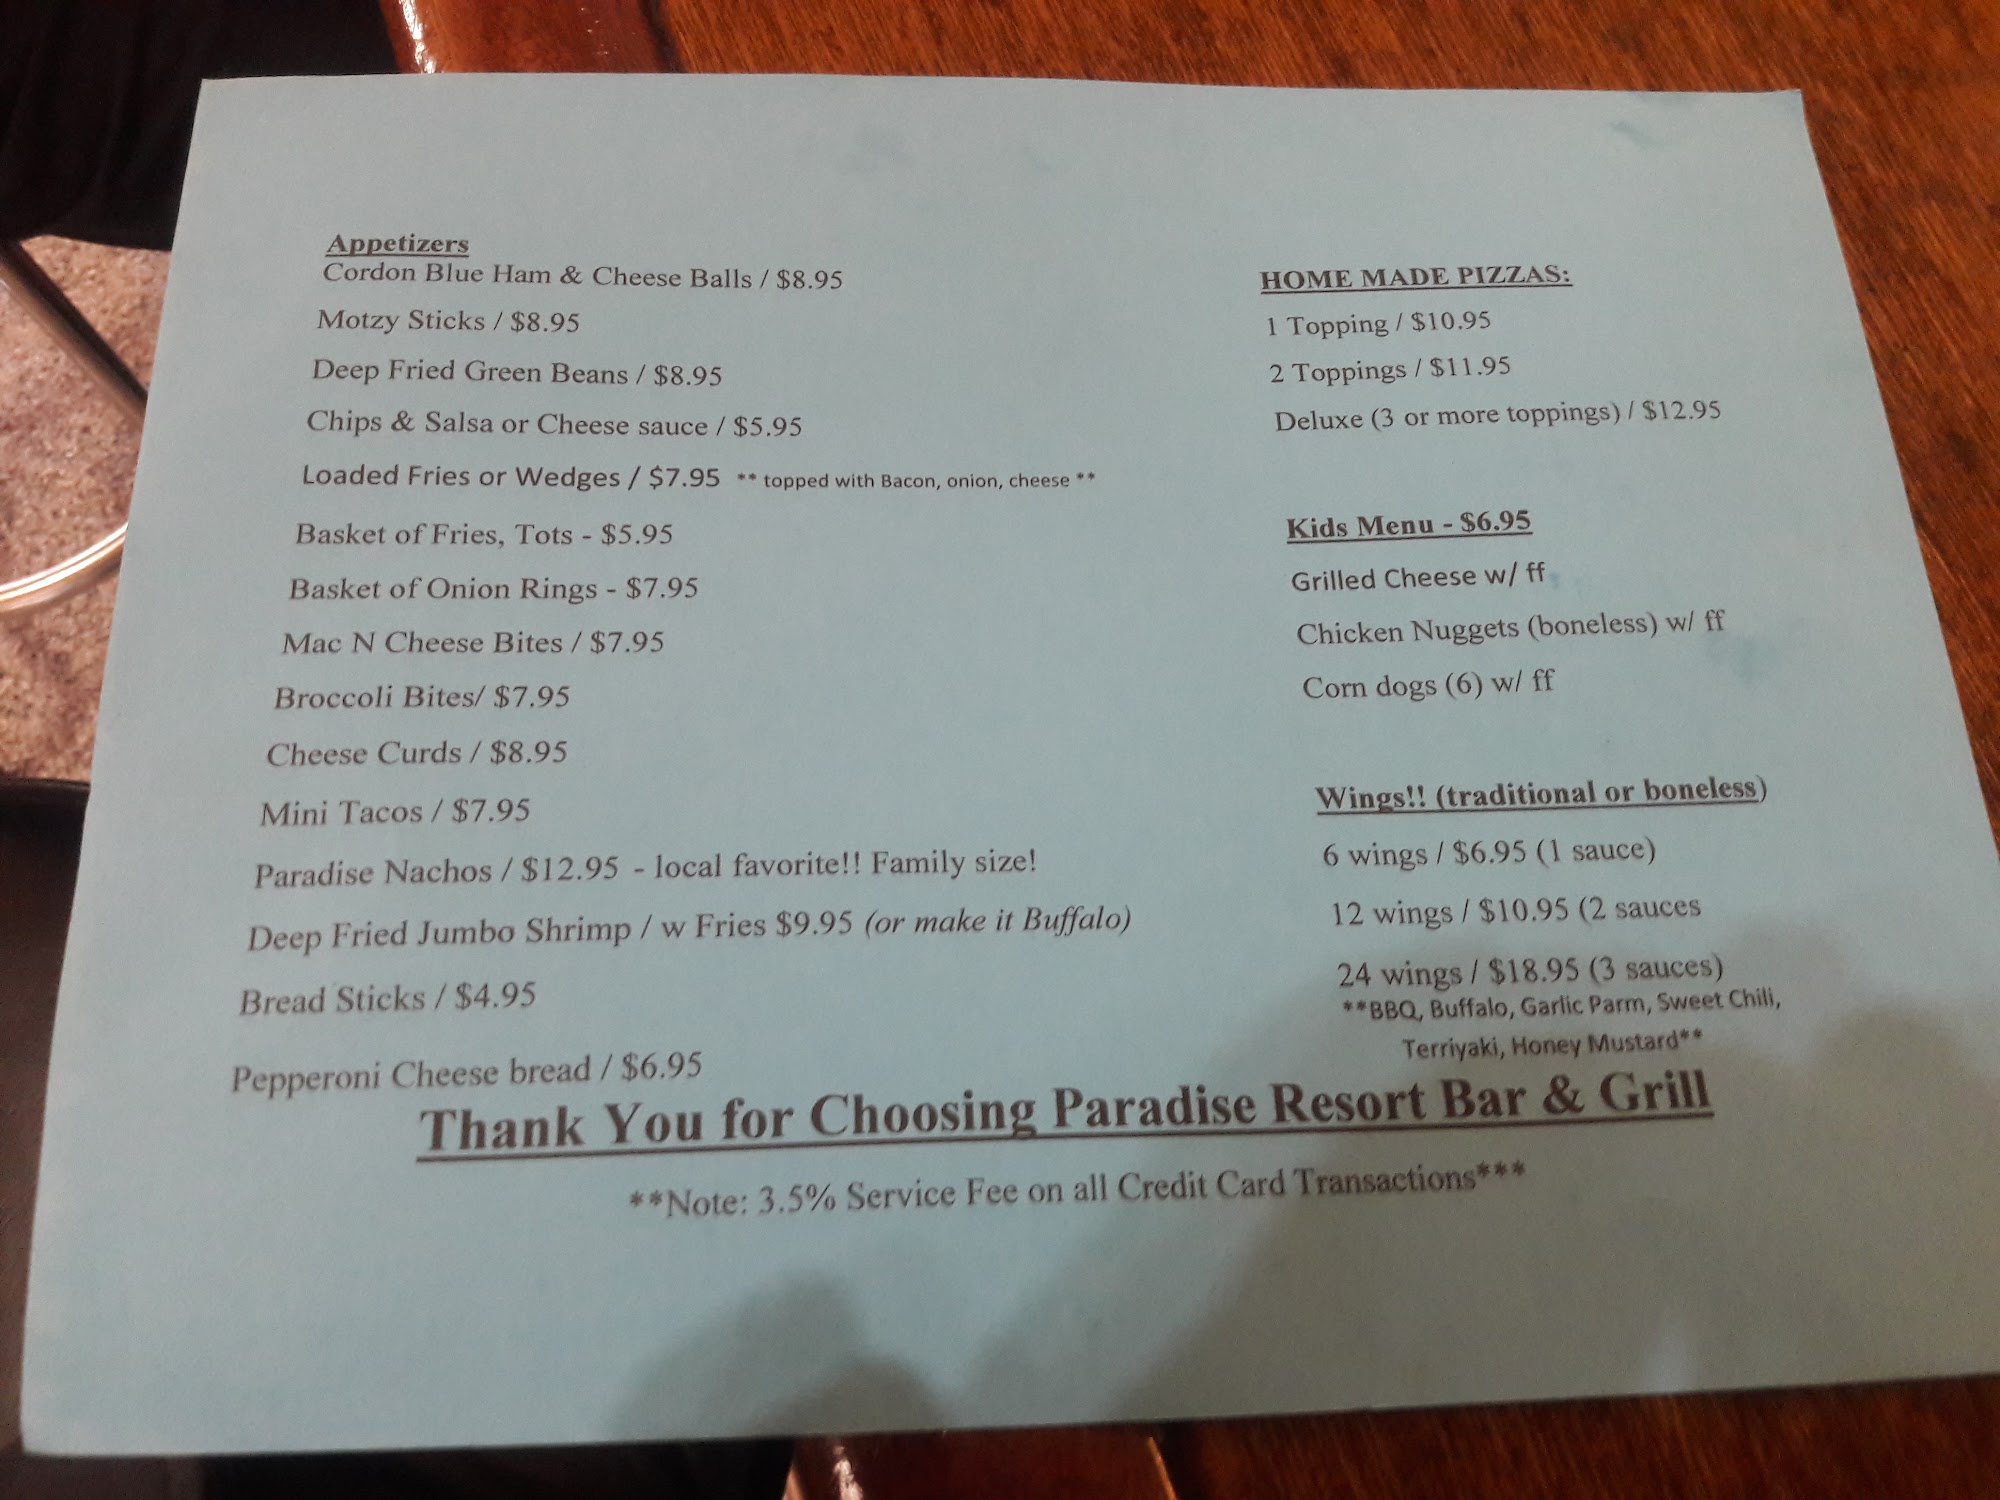 Appetizers
Cordon Blue Ham & Cheese Balls / $8.95
Motzy Sticks / $8.95
Deep Fried Green Beans / $8.95
Chips & Salsa or Cheese sauce / $5.95
Loaded Fries or Wedges / $7.95 ** topped with Bacon, onion, cheese **
Basket of Fries, Tots - $5.95
Basket of Onion Rings - $7.95
Mac N Cheese Bites / $7.95
Broccoli Bites/ $7.95
Cheese Curds / $8.95
Mini Tacos / $7.95
Paradise Nachos / $12.95 - local favorite!! Family size!
Deep Fried Jumbo Shrimp / w Fries $9.95 (or make it Buffalo)
Bread Sticks / $4.95
Pepperoni Cheese bread / $6.95
HOME MADE PIZZAS:
1 Topping / $10.95
2 Toppings / $11.95
Deluxe (3 or more toppings) / $12.95
Kids Menu - $6.95
Grilled Cheese w/ ff
Chicken Nuggets (boneless) w/ ff
Corn dogs (6) w/ ff
Wings!! (traditional or boneless)
6 wings / $6.95 (1 sauce)
12 wings / $10.95 (2 sauces
24 wings / $18.95 (3 sauces)
**BBQ, Buffalo, Garlic Parm, Sweet Chili,
Terriyaki, Honey Mustard**
Thank You for Choosing Paradise Resort Bar & Grill
**Note: 3.5% Service Fee on all Credit Card Transactions***